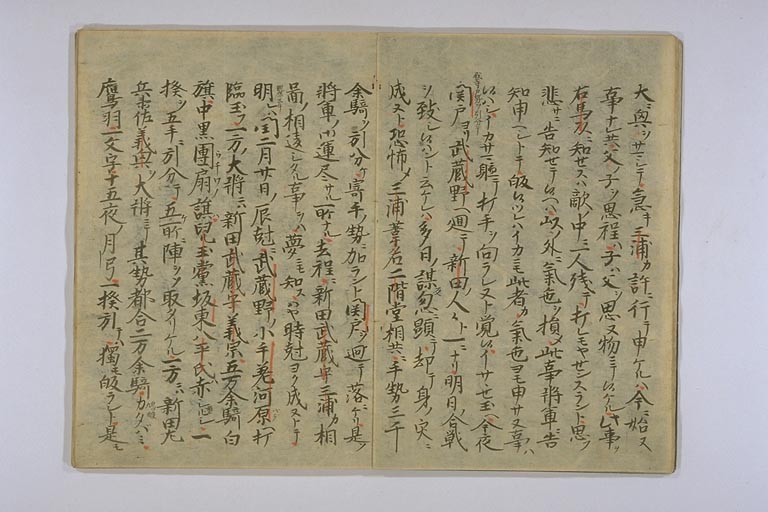 大ニ興サマシテ急キ三浦カ許ニ行テ申ケルハ今ニ始ヌ
事ナレ共父ノ子ヲ思程子ハ父ヲ思又物ニテ候ケル此事ヲ
右馬入ニ知セスハ敵ノ中ニ一人残テ打レモヤセンスラント思フ
悲サニ告知セテ候ヘハ以ノ外ニ氣色ヲ損メ此事将軍ニ告
知申ヘシトテ皈候ツレハイカニモ此者カ氣色ヨモ申サヌ事ハ
候ハシイカサマ軈テ打手ヲ向ラレヌト覚候イサヽセ玉ヘ今夜
関戸ヨリ武蔵野ヘ廻テ新田人々ト一ニナリ明日ノ合戦
ヲ致シ候ハント云ケレハ多日ノ謀忽ニ顕テ却テ身ノ災ニ
成ヌト恐怖メ三浦葦名二階堂相共ニ手勢三千
余騎ヲ引分テ寄手ノ勢ニ加ラント関戸ヲ廻テ落ニケリ是ソ
将軍ノ御運尽サル所ナル去程ニ新田武蔵守三浦カ相
啚ノ相違シタル事ヲハ夢ニモ知ス時尅ヨク成ヌトテ
明レハ閏二月廿日ノ辰尅ニ武蔵野ノ小手差河原ヘ打
臨玉フ一方ノ大将ニハ新田武蔵守義宗五万余騎白
旗中黒團扇ノ旗児玉党坂東八平氏赤印一
揆ヲ五手ニ引分テ五所ニ陣ヲソ取タリケル一方ニハ新田左
兵衛佐義興ヲ大将ニテ其勢都合二万余騎カタハミ
鷹羽一文字十五夜ノ月弓一揆引テハ獨モ皈ラシト是モ